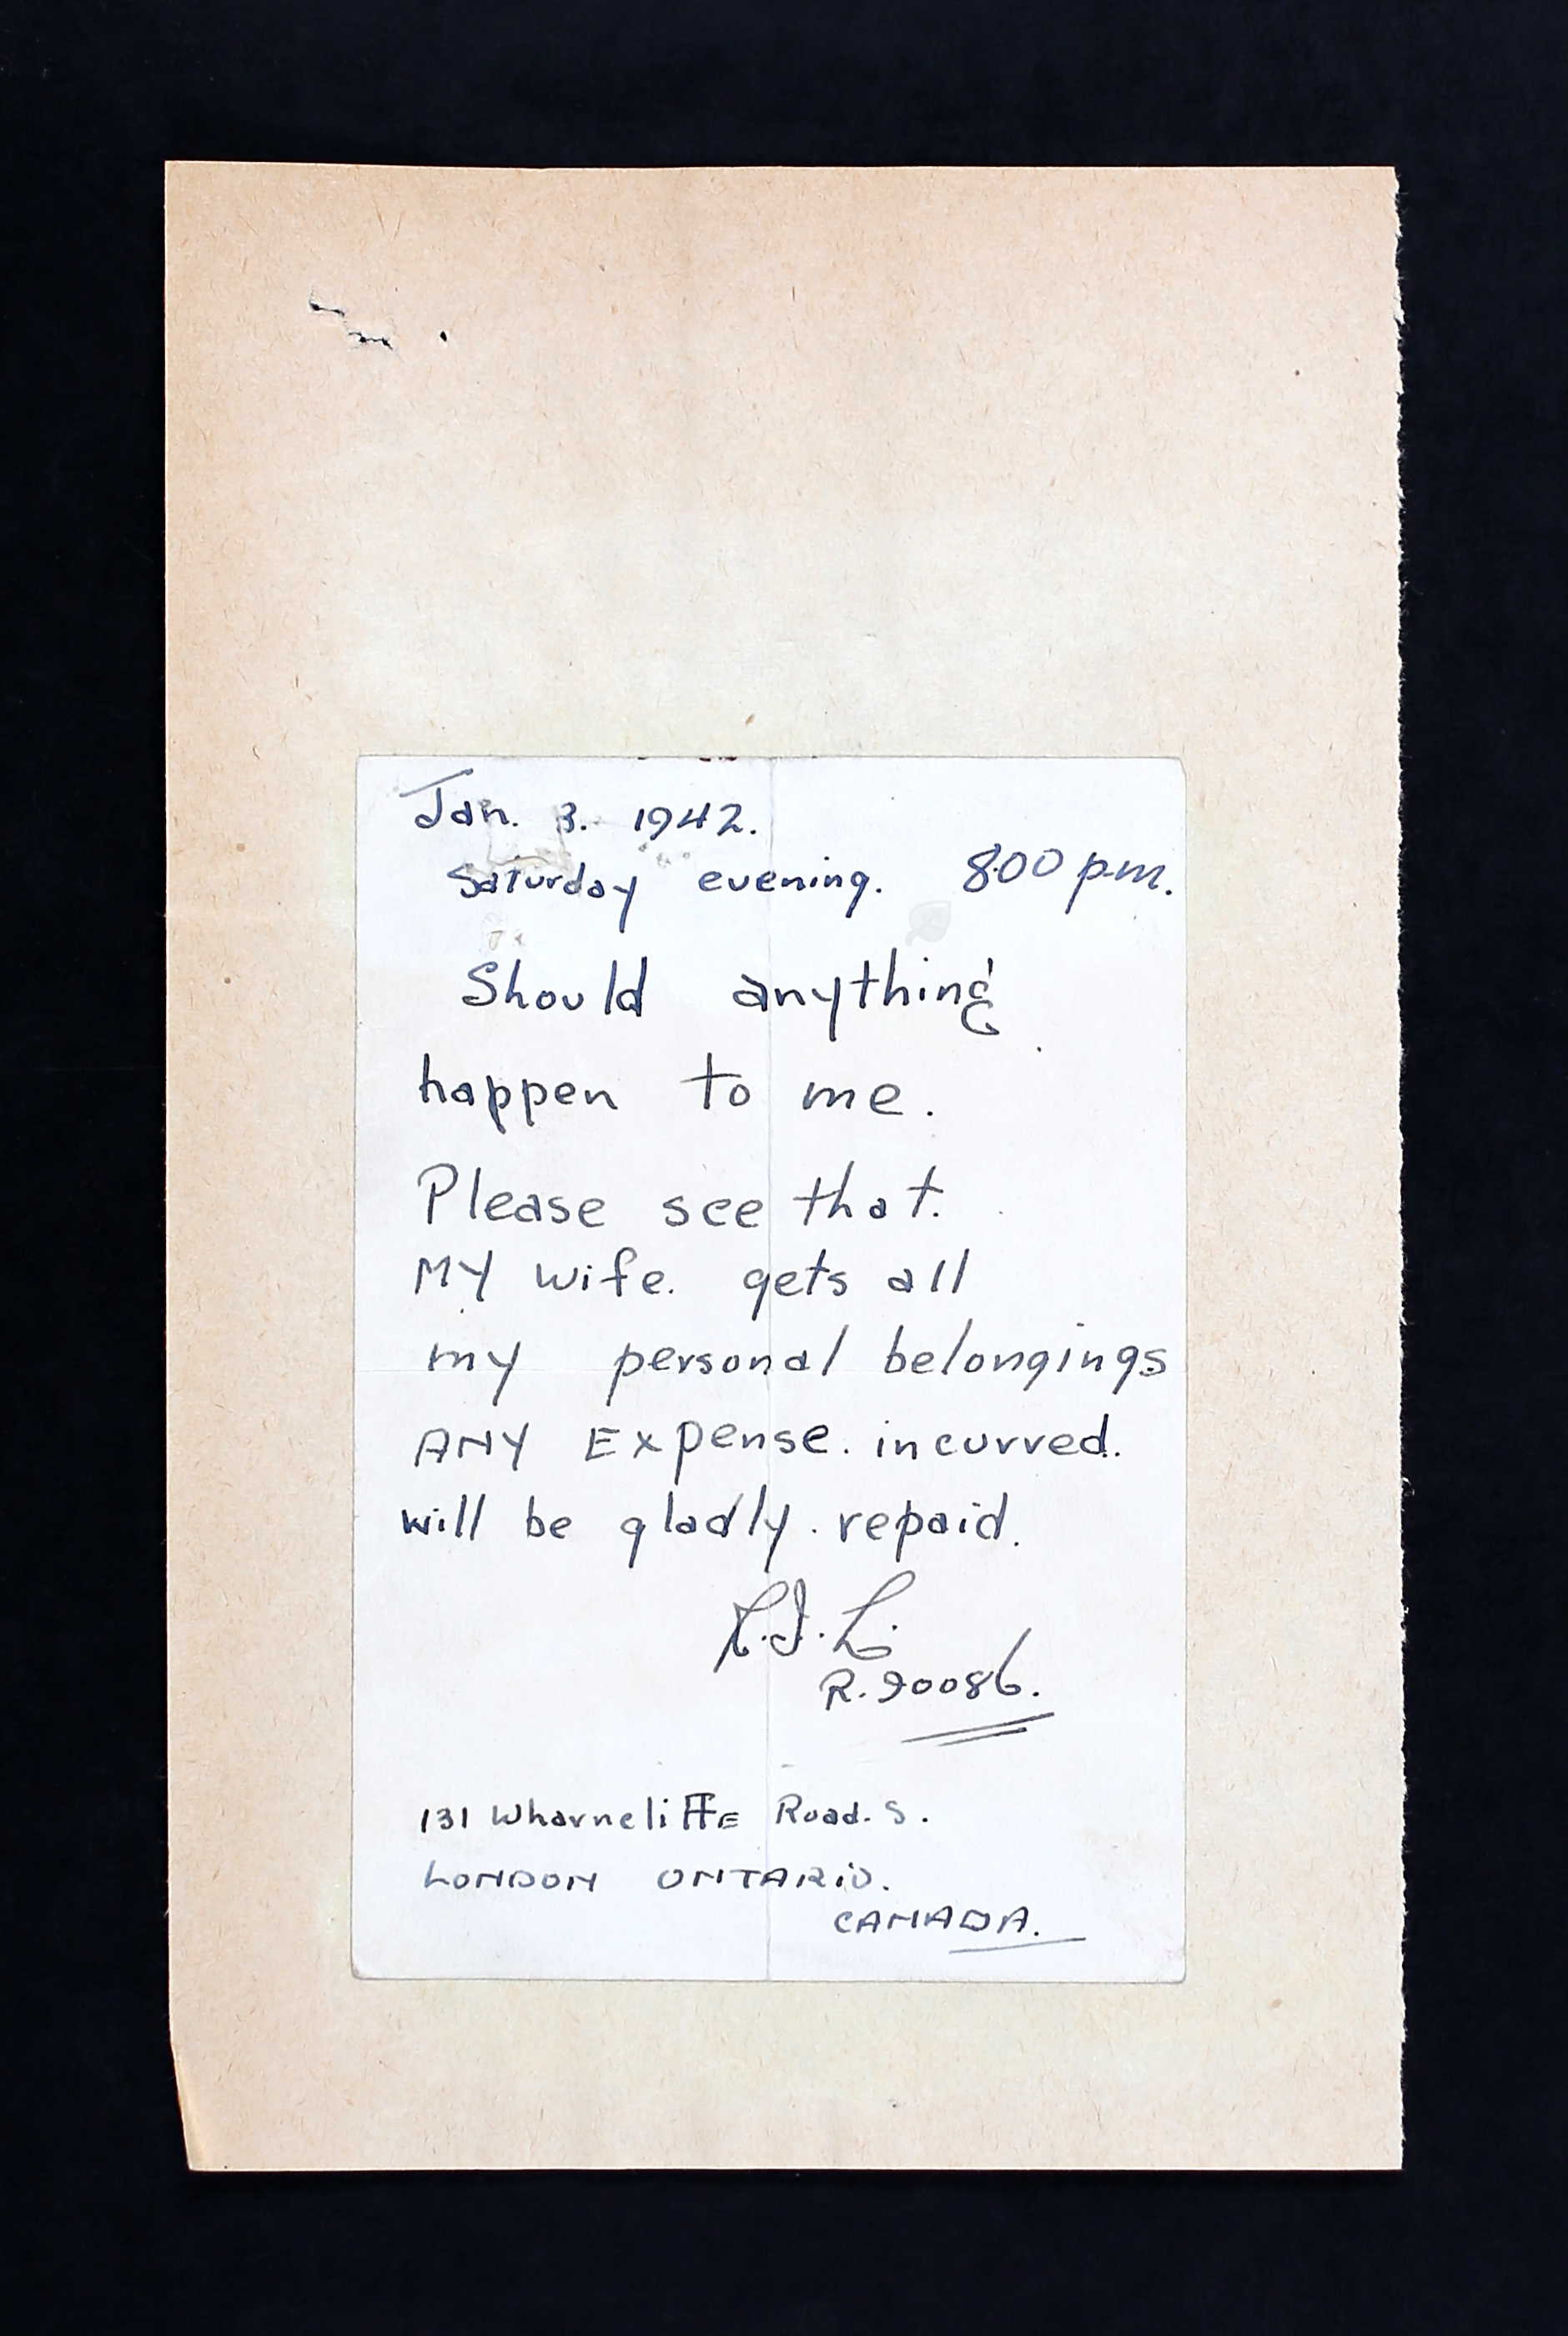 Jan. 3. 1942.
Saturday evening. 8.00 p.m.
Should anything
happen to me.
Please see that.
MY wife. gets all
my personal belongings
ANY Expense. incurred.
will be gladly. repaid.
R.90086.
131 WharncliFFE Road. S.
LONDON ONTARiO.
CANADA.